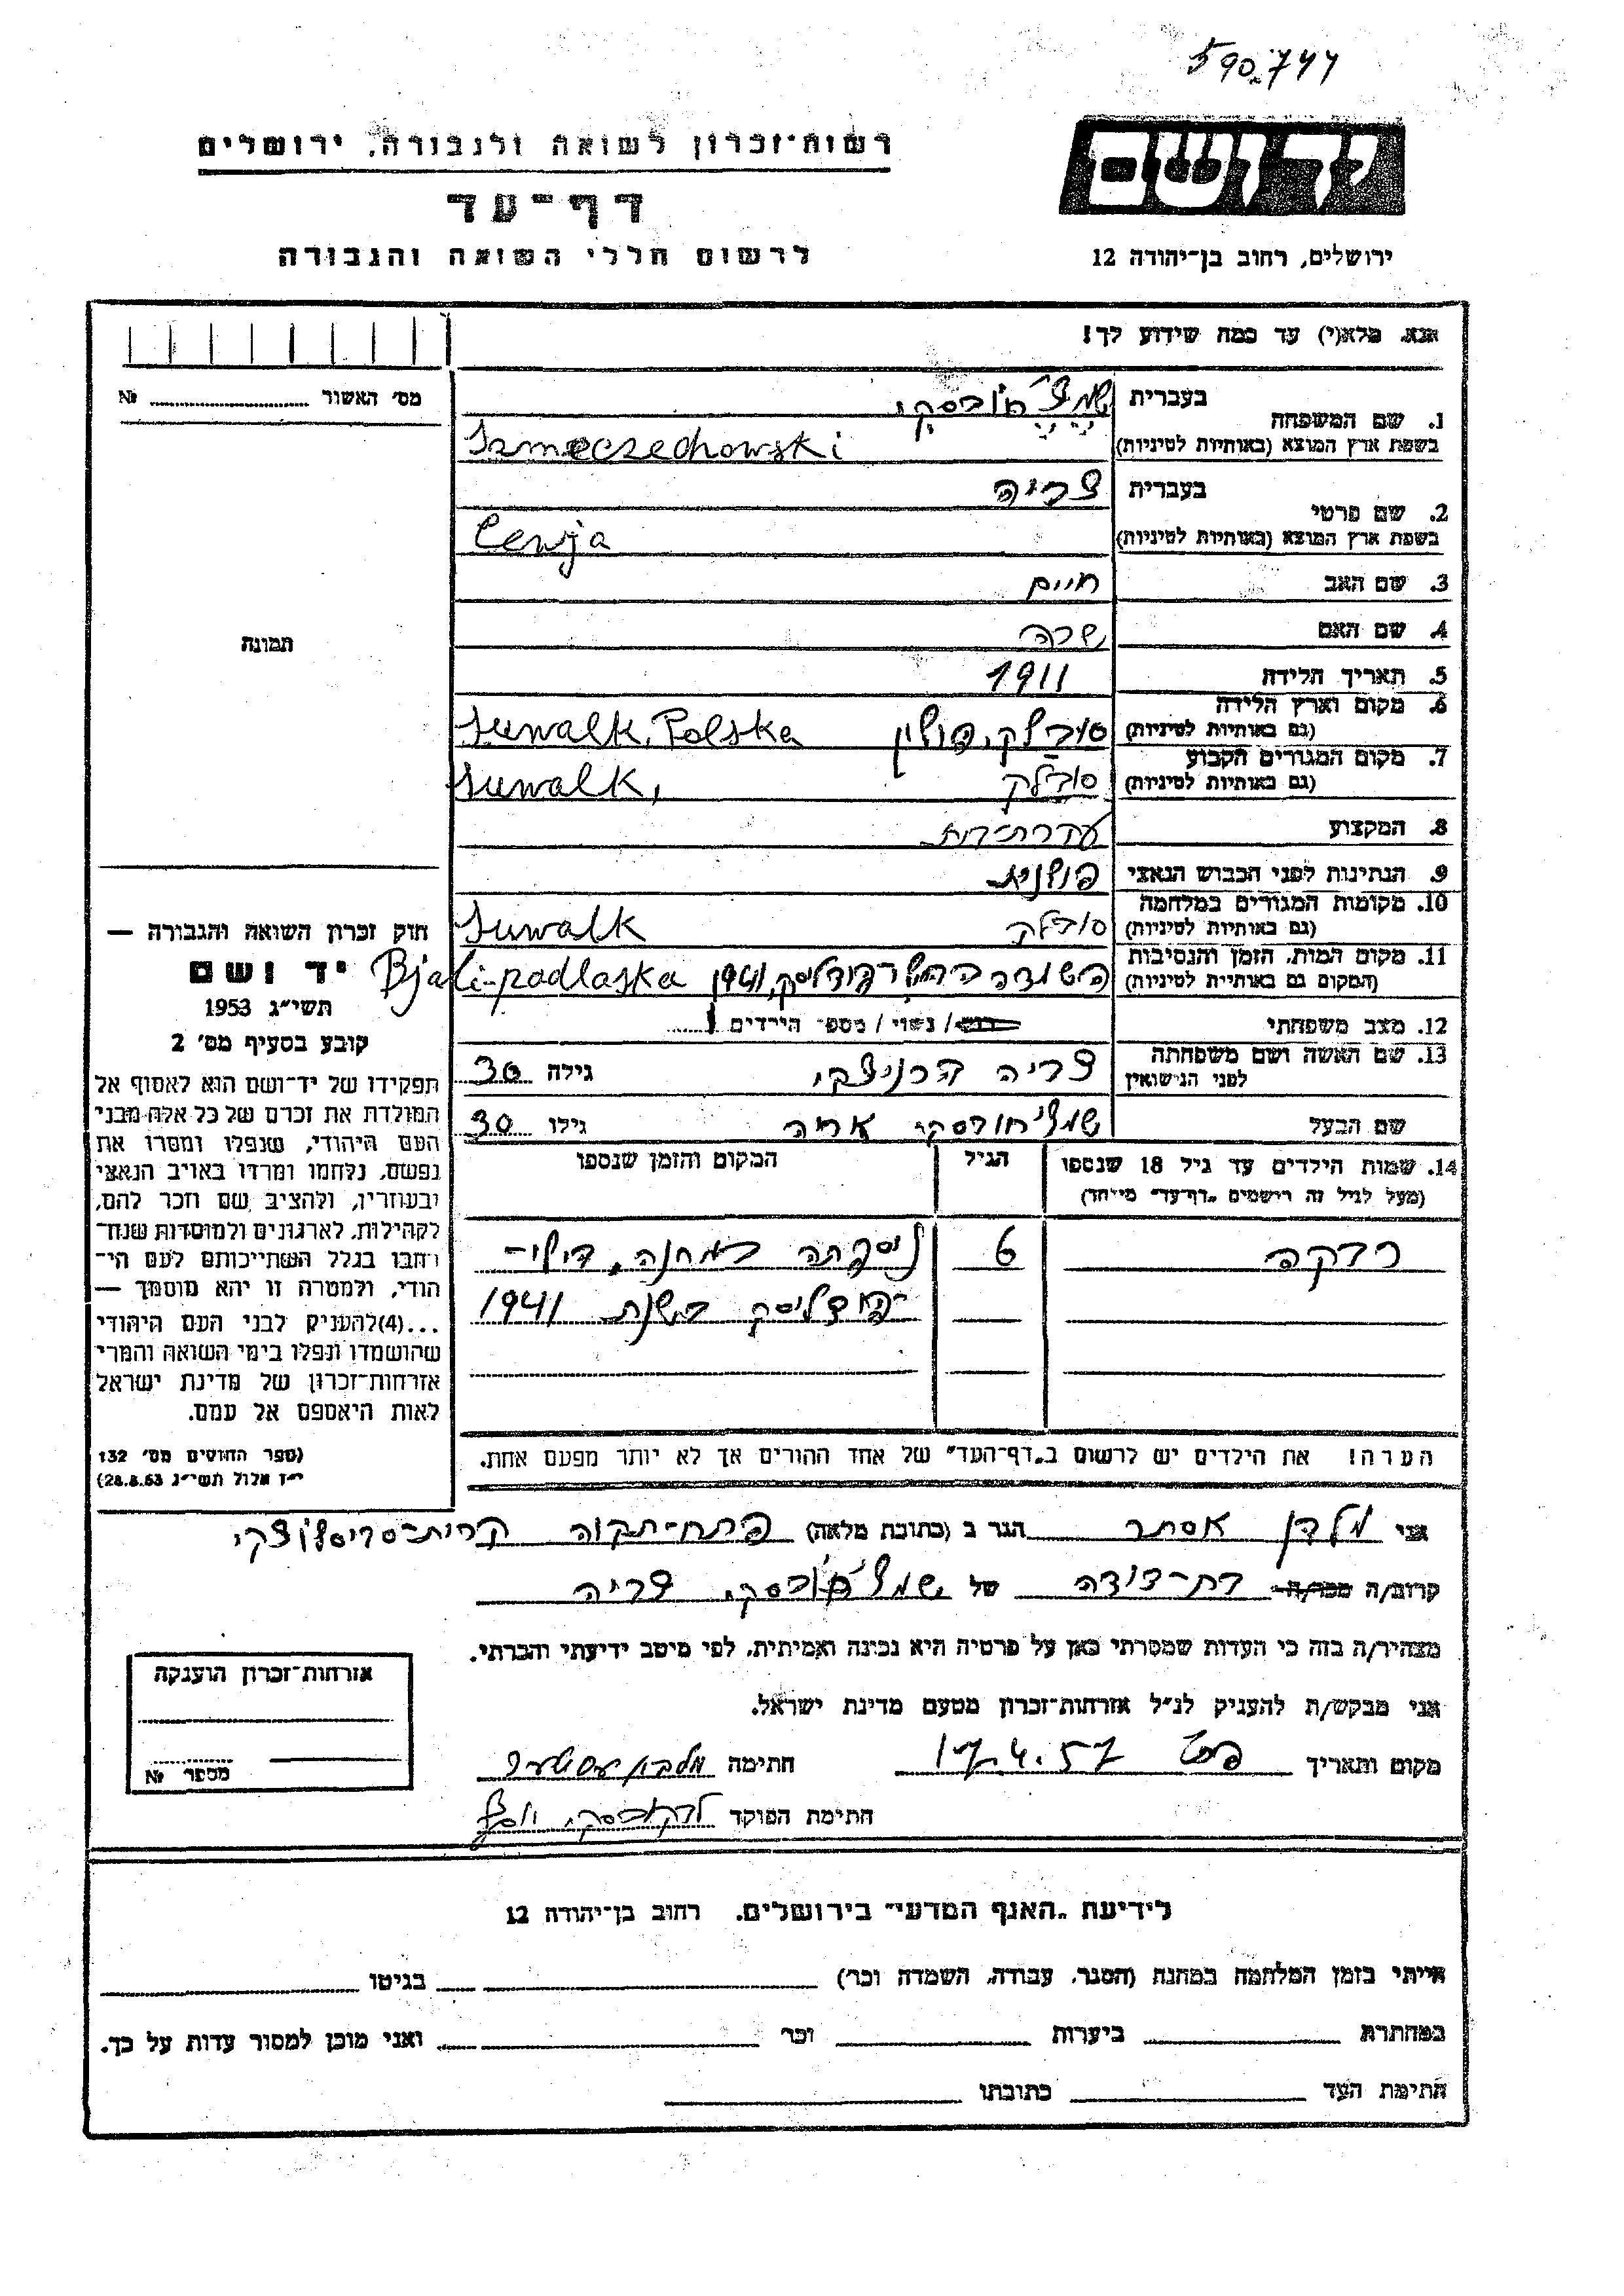 590.744
יד ושם
רשות־זכרון לשואה ולגבורה, ירושלים
דף־עד
לרשום חללי השואה והגבורה
ירושלים, רחוב בן־יהודה 12
אנא, מלא(י) עד כמה שידוע לך!
מס׳ האשור № 
תמונה
1. שם המשפחה
בעברית
בשפת ארץ המוצא (באותיות לטיניות) Szmeczechowski
2. שם פרטי
בעברית צביה
בשפת ארץ המוצא (באותיות לטיניות) Cewja
3. שם האב חיים
4. שם האם שרה
5. תאריך הלידה 1911
6. מקום וארץ הלידה סובלק, פולין
(גם באותיות לטיניות) Suwalk, Polska
7. מקום המגורים הקבוע סובלק
(גם באותיות לטיניות) Suwalk,
8. המקצוע
9. הנתינות לפני הכבוש הנאצי פולנית
10. מקומות המגורים במלחמה סובלק
(גם באותיות לטיניות) Suwalk
11. מקום המות, הזמן והנסיבות 1941
(המקום גם באותיות לטיניות) Bjali-podlaska
12. מצב משפחתי רווק / נשוי / מספר הילדים 1
13. שם האשה ושם משפחתה צביה גילה 30
לפני הנישואין
שם הבעל אריה גילו 30
14. שמות הילדים עד גיל 18 שנספו הגיל המקום והזמן שנספו
(מעל לגיל זה רושמים „דף־עד״ מיוחד)
רבקה 6 ניספתה במחנה, בילי־
־פודליסק בשנת 1941
הערה! את הילדים יש לרשום ב„דף־העד״ של אחד ההורים אך לא יותר מפעם אחת.
חוק זכרון השואה והגבורה —
יד ושם
תשי״ג 1953
קובע בסעיף מס׳ 2
תפקידו של יד־ושם הוא לאסוף אל
המולדת את זכרם של כל אלה מבני
העם היהודי, שנפלו ומסרו את
נפשם, נלחמו ומרדו באויב הנאצי
ובעוזריו, ולהציב שם וזכר להם,
לקהילות, לארגונים ולמוסדות שנח־
רבו בגלל השתייכותם לעם הי־
הודי, ולמטרה זו יהא מוסמך —
...(4) להעניק לבני העם היהודי
שהושמדו ונפלו בימי השואה והמרי
אזרחות־זכרון של מדינת ישראל
לאות היאספם אל עמם.
(ספר החוקים מס׳ 132
י״ז אלול תשי״ג 28.8.53)
אני אסתר הגר ב (כתובת מלאה) פתח־תקוה קרית־
קרוב/ה מכר/ה בת־דודה של צביה
מצהיר/ה בזה כי העדות שמסרתי כאן על פרטיה היא נכונה ואמיתית, לפי מיטב ידיעתי והכרתי.
אני מבקש/ת להעניק לנ״ל אזרחות־זכרון מטעם מדינת ישראל.
מקום ותאריך 17.4.57 חתימה
חתימת הפוקד
אזרחות־זכרון הוענקה
מספר №
לידיעת „האגף המדעי״ בירושלים, רחוב בן־יהודה 12
הייתי בזמן המלחמה במחנה (הסגר, עבודה, השמדה וכו׳) בגיטו
במחתרת ביערות וכו׳ ואני מוכן למסור עדות על כך.
חתימת העד כתובתו